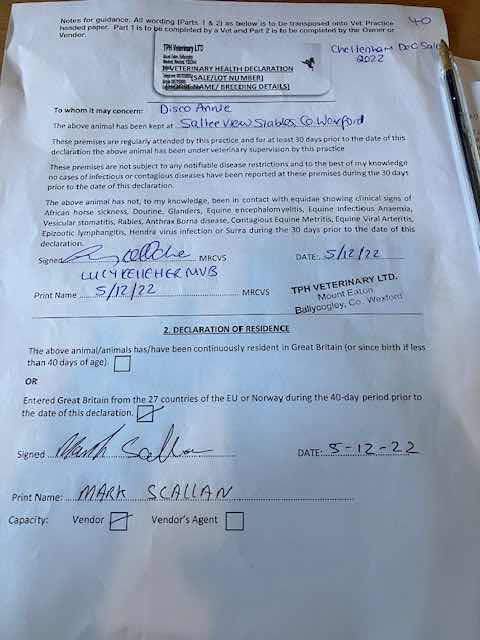 Notes for guidance: All wording (Parts 1 & 2) as below is to be transposed onto Vet Practice
headed paper. Part 1 is to be completed by a Vet and Part 2 is to be completed by the Owner or
Vendor.
40
Cheltenham Dec Sale
2022
TPH Veterinary LTD
1. VETERINARY HEALTH DECLARATION
(SALE/LOT NUMBER)
(HORSE NAME/ BREEDING DETAILS)
To whom it may concern: Disco Annie
The above animal has been kept at Saltee View Stables Co. Wexford
These premises are regularly attended by this practice and for at least 30 days prior to the date of this
declaration the above animal has been under veterinary supervision by this practice
These premises are not subject to any notifiable disease restrictions and to the best of my knowledge
no cases of infectious or contagious diseases have been reported at these premises during the 30 days
prior to the date of this declaration.
The above animal has not, to my knowledge, been in contact with equidae showing clinical signs of
African horse sickness, Dourine, Glanders, Equine encephalomyelitis, Equine Infectious Anaemia,
Vesicular stomatitis, Rabies, Anthrax Borna disease, Contagious Equine Metritis, Equine Viral Arteritis,
Epizootic lymphangitis, Hendra virus infection or Surra during the 30 days prior to the date of this
declaration.
Signed MRCVS DATE: 5/12/22
LUCY KELLEHER MVB
Print Name 5/12/22 MRCVS
TPH VETERINARY LTD.
Mount Eaton
Ballycogley, Co. Wexford
2. DECLARATION OF RESIDENCE
The above animal/animals has/have been continuously resident in Great Britain (or since birth if less
than 40 days of age).
OR
Entered Great Britain from the 27 countries of the EU or Norway during the 40-day period prior to
the date of this declaration.
Signed Mark Scallan DATE: 5-12-22
Print Name: MARK SCALLAN
Capacity: Vendor Vendor's Agent